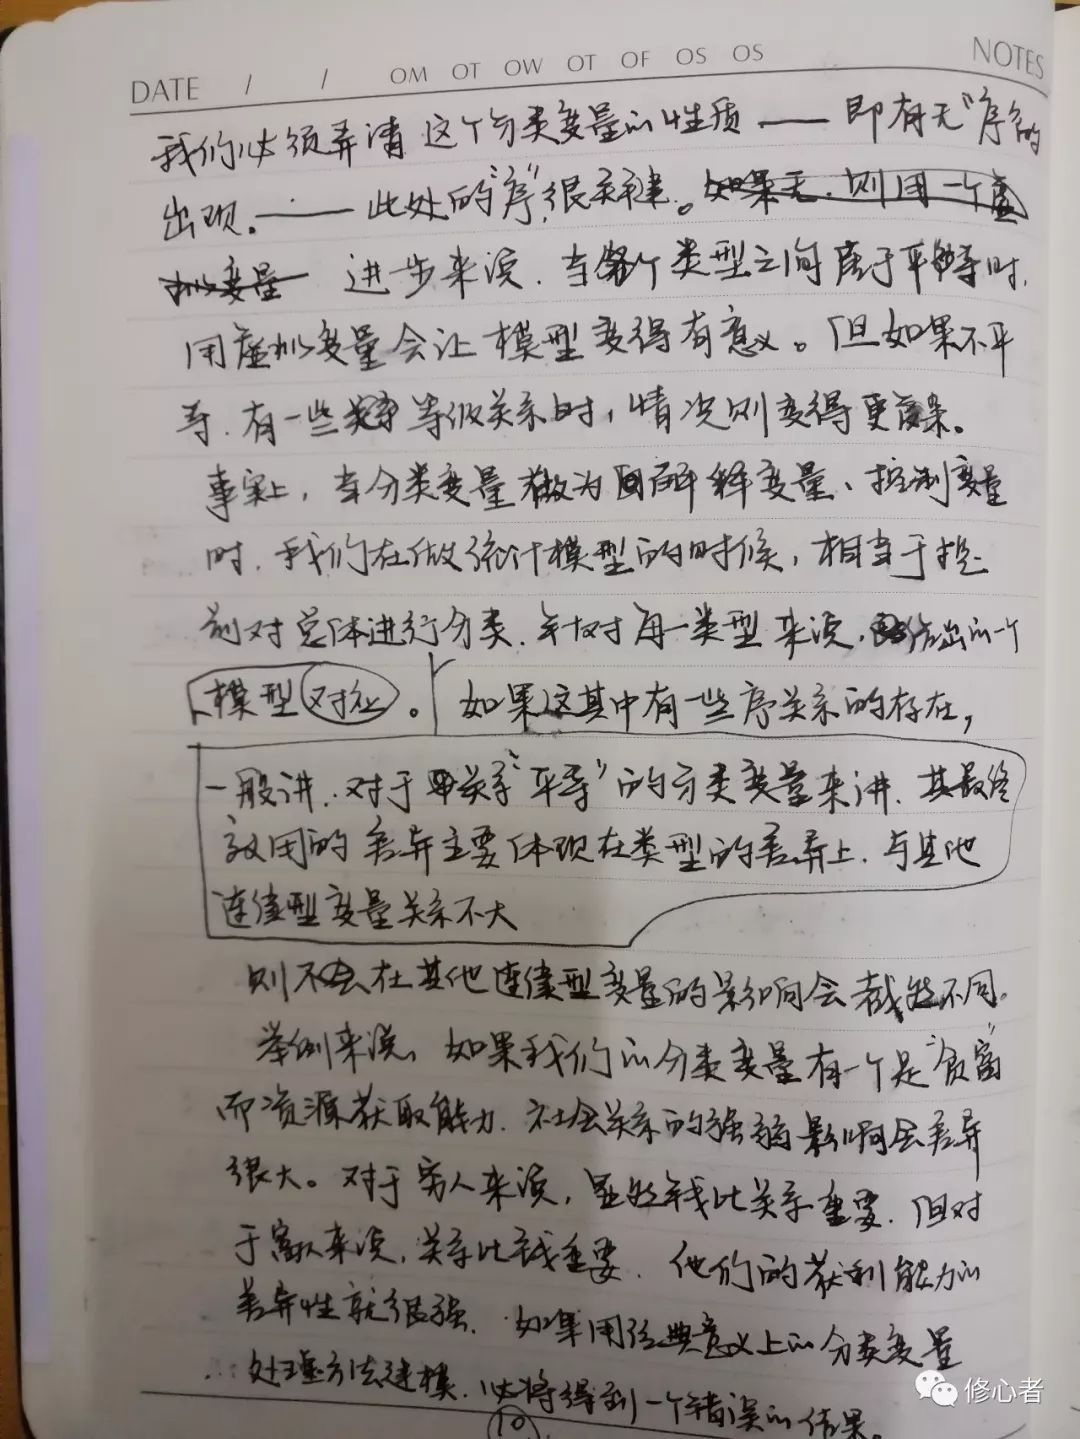 DATE / / OM OT OW OT OF OS OS NOTES
我们必须弄清这个分类变量的性质——即有无"序"的
出现。——此处的"序"很关键。如果无,则用一个虚
拟变量 进步来说,当各个类型之间属于平等时,
用虚拟变量会让模型变得有意义。但如果不平
等,有一些等级关系时,情况则变得更复杂。
事实上,当分类变量做为解释变量、控制变量
时,我们在做统计模型的时候,相当于提
前对总体进行分类,针对每一类型来说,给出的一个
模型对社。 如果这其中有一些序关系的存在,
一般讲,对于关系"平等"的分类变量来讲,其最终
效用的差异主要体现在类型的差异上,与其他
连续型变量关系不大
则不会在其他连续型变量的影响会截然不同。
举例来说,如果我们的分类变量有一个是"贫富"
而资源获取能力,社会关系的强弱影响会差异
很大。对于穷人来说,显然钱比关系重要,但对
于富人来说,关系比钱重要,他们的获利能力的
差异性就很强,如果用经典意义上的分类变量
处理方法建模,必将得到一个错误的结果。
10
修心者